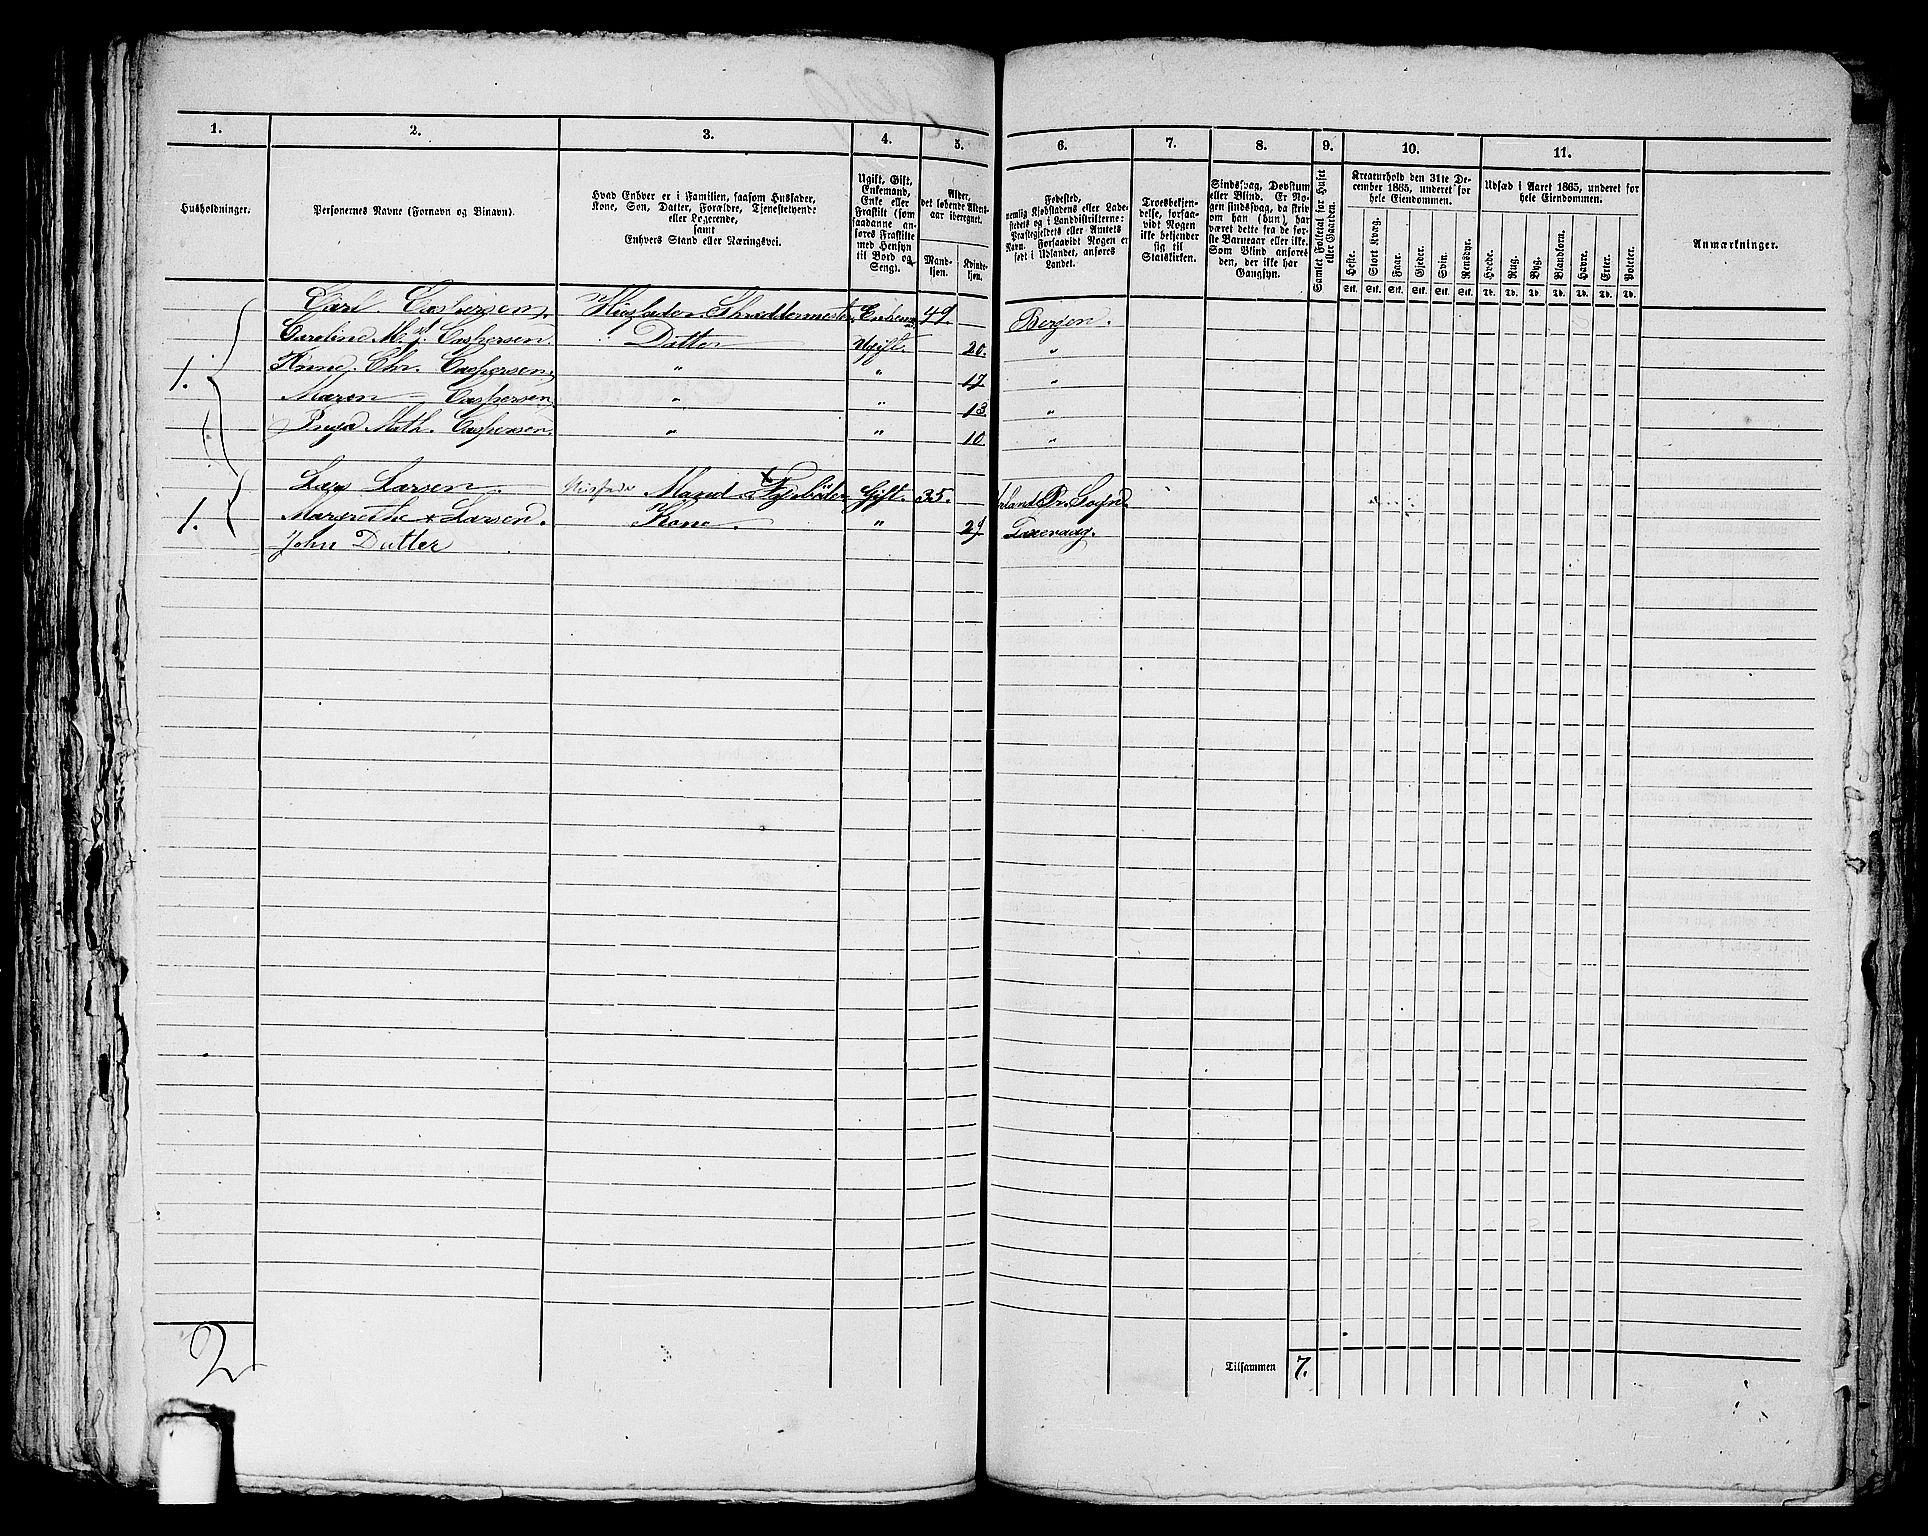 1. 2. 3. 4. 5. 6. 7. 8. 9. 10. 11.
Husholdninger.
Personernes Navne (Fornavn og Binavn).
Hvad Enhver er i Familien, saasom Husfader,
Kone, Søn, Datter, Forældre, Tjenestetyende
eller Logerende,
samt
Enhvers Stand eller Næringsvei.
Ugift, Gift,
Enkemand,
Enke eller
Fraskilt (som
saadanne an-
føres Fraskilte
med Hensyn
til Bord og
Seng).
Alder,
det løbende Alders-
aar iberegnet.
Mand-
kjøn.
Kvinde-
kjøn.
Fødested,
nemlig Kjøbstadens eller Lade-
stedets og i Landdistrikterne:
Præstegjeldets eller Amtets
Navn. Forsaavidt Nogen er
født i Udlandet, anføres
Landet.
Troesbekjen-
delse, forsaa-
vidt Nogen
ikke bekjender
sig til
Statskirken.
Sindssvag, Døvstum
eller Blind. Er No-
gen sindssvag, da skriv
om han (hun) har
været dette fra de før-
ste Barneaar eller ikke.
Som Blind anføres
den, der ikke har
Gangsyn.
Samlet Folketal for Huset
eller Gaarden.
Kreaturhold den 31te De-
cember 1865, underet for
hele Eiendommen.
Heste. Stort Kvæg. Faar. Gjeder. Svin. Rensdyr.
Stk. Stk. Stk. Stk. Stk. Stk.
Udsæd i Aaret 1865, underet for
hele Eiendommen.
Hvede. Rug. Byg. Blandkorn. Havre. Erter. Poteter.
Td. Td. Td. Td. Td. Td. Td.
Anmærkninger.
Carl Caspersen. Husfader Enkem 49. Bergen.
Caroline M. Caspersen. Datter Ugift. 20. "
1. Anne Chr. Caspersen. " " 17 "
Maren Caspersen. " " 13. "
Inga Math. Caspersen. " " 10 "
Lars Larsen. Husfader Mand Gift. 35. Pr. Sogn.
1. Margrethe Larsen. Kone. " 29
John Dutter
2
Tilsammen 7.